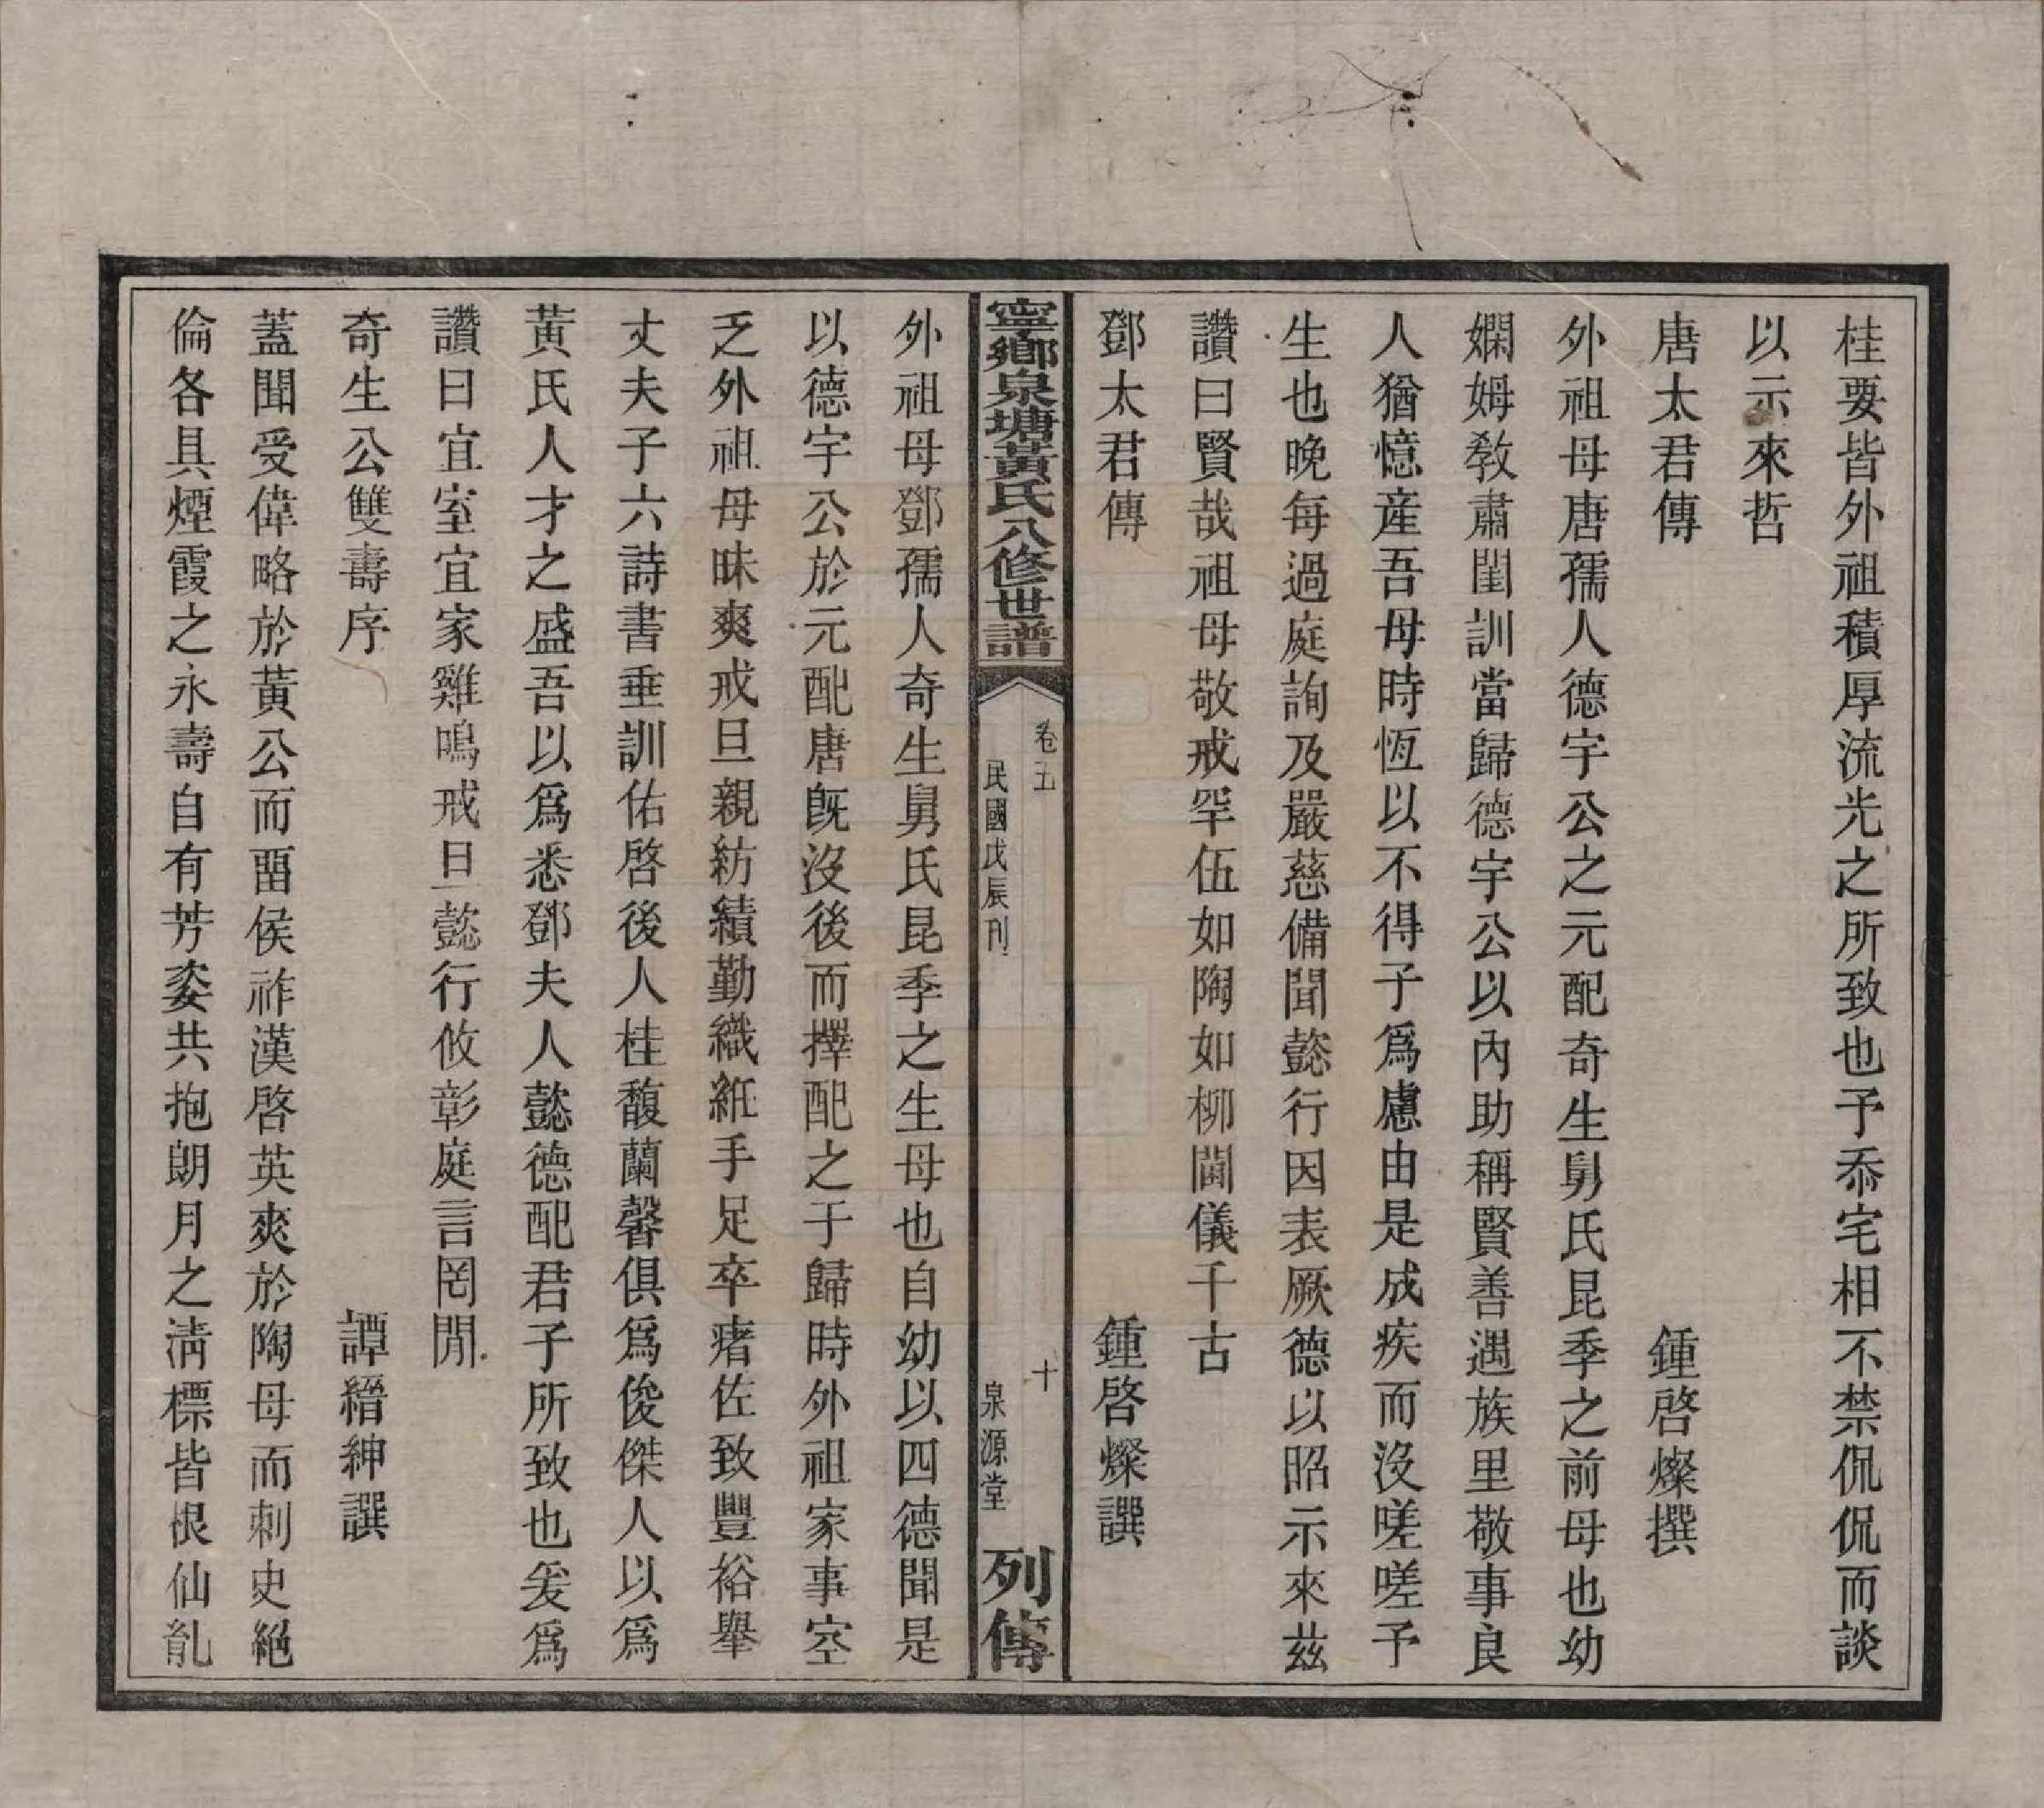 桂要皆外祖積厚流光之所致也予忝宅相不禁侃侃而談
以示來哲
唐太君傳　鍾啓燦撰
外祖母唐孺人德宇公之元配奇生舅氏昆季之前母也幼
嫻姆敎肅閨訓當歸德宇公以內助稱賢善遇族里敬事良
人猶憶産吾母時恆以不得子爲慮由是成疾而沒嗟嗟予
生也晚每過庭詢及嚴慈備聞懿行因表厥德以昭示來兹
讚曰賢哉祖母敬戒罕伍如陶如柳閫儀千古
鄧太君傳　鍾啓燦譔
寧鄉泉塘黃氏八修世譜　卷五　民國戊辰刊　十　泉源堂　列傳
外祖母鄧孺人奇生舅氏昆季之生母也自幼以四德聞是
以德宇公於元配唐旣沒後而擇配之于歸時外祖家事空
乏外祖母昧爽戒旦親紡績勤織紝手足卒瘏佐致豐裕舉
丈夫子六詩書垂訓佑啓後人桂馥蘭馨俱爲俊傑人以爲
黃氏人才之盛吾以爲悉鄧夫人懿德配君子所致也爰爲
讚曰宜室宜家雞鳴戒旦懿行攸彰庭言罔閒
奇生公雙壽序　譚縉紳譔
蓋聞受偉略於黃公而畱侯祚漢啓英爽於陶母而刺史絕
倫各具煙霞之永壽自有芳姿共抱朗月之淸標皆根仙骪